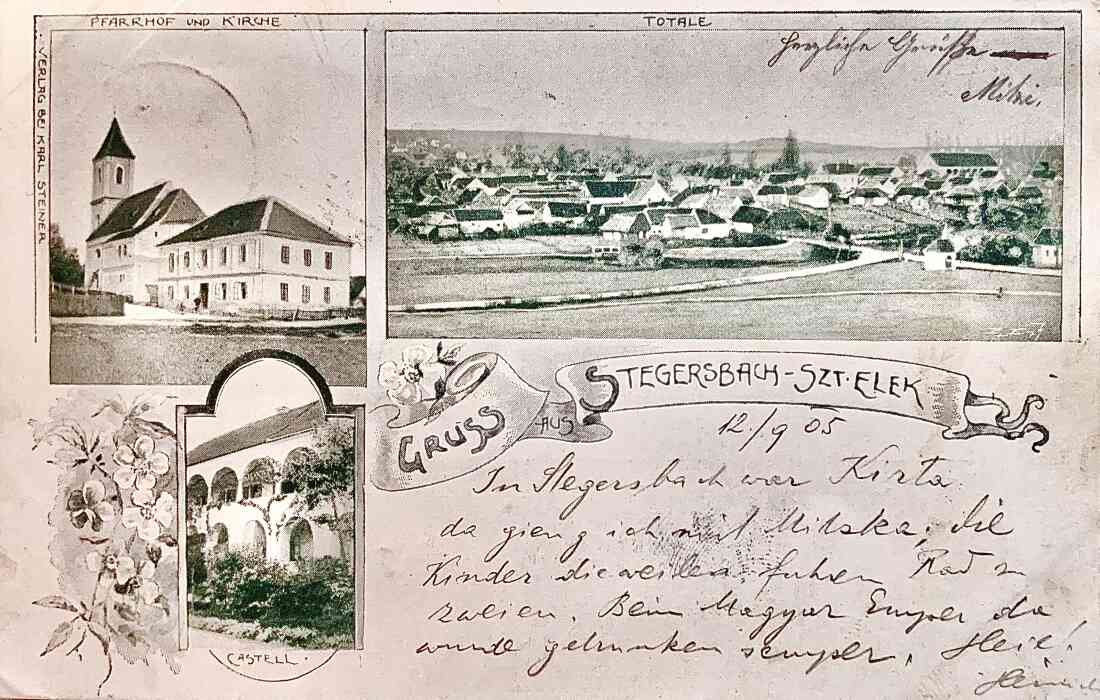 PFARRHOF UND KIRCHE
TOTALE
VERLAG BEI KARL STEINER
Herzliche Grüße
Mitzi.
GRUSS AUS STEGERSBACH-SZT. ELEK
CASTELL.
12./9 05
In Stegersbach war Kirta
da gieng ich mit Mitska, die
Kinder dieweilen fuhren Rad zu
zweien. Beim Magyar Emper da
wurde getrunken semper. Heil!
Heinrich